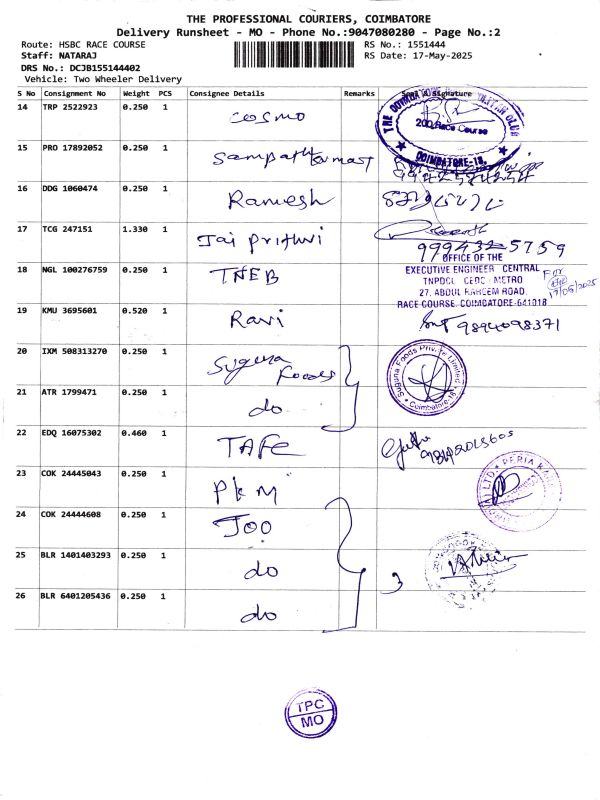 THE PROFESSIONAL COURIERS, COIMBATORE
Delivery Runsheet - MO - Phone No.:9047080280 - Page No.:2
Route: HSBC RACE COURSE
RS No.: 1551444
Staff: NATARAJ
RS Date: 17-May-2025
DRS No.: DCJB155144402
Vehicle: Two Wheeler Delivery
S No Consignment No Weight PCS Consignee Details Remarks Signature
14 TRP 2522923 0.250 1 cosmo
200,Race Course
COIMBATORE-18.
15 PRO 17892052 0.250 1 Sampath
16 DDG 1060474 0.250 1 Ramesh
17 TCG 247151 1.330 1 Jai Prithvi
9994325759
18 NGL 100276759 0.250 1 TNEB
OFFICE OF THE
EXECUTIVE ENGINEER CENTRAL
TNPDCL CEDC METRO
27, ABDUL RAHEEM ROAD,
RACE COURSE, COIMBATORE-641018
17/05/2025
19 KMU 3695601 0.520 1 Ravi 9894098371
20 IXM 508313270 0.250 1 Suguna Foods
Suguna Foods Private Limited
Coimbatore-18
21 ATR 1799471 0.250 1 do
22 EDQ 16075302 0.460 1 TAFE
23 COK 24445043 0.250 1 PKM
24 COK 24444608 0.250 1 JOO
25 BLR 1401403293 0.250 1 do
3
26 BLR 6401205436 0.250 1 do
TPC
MO